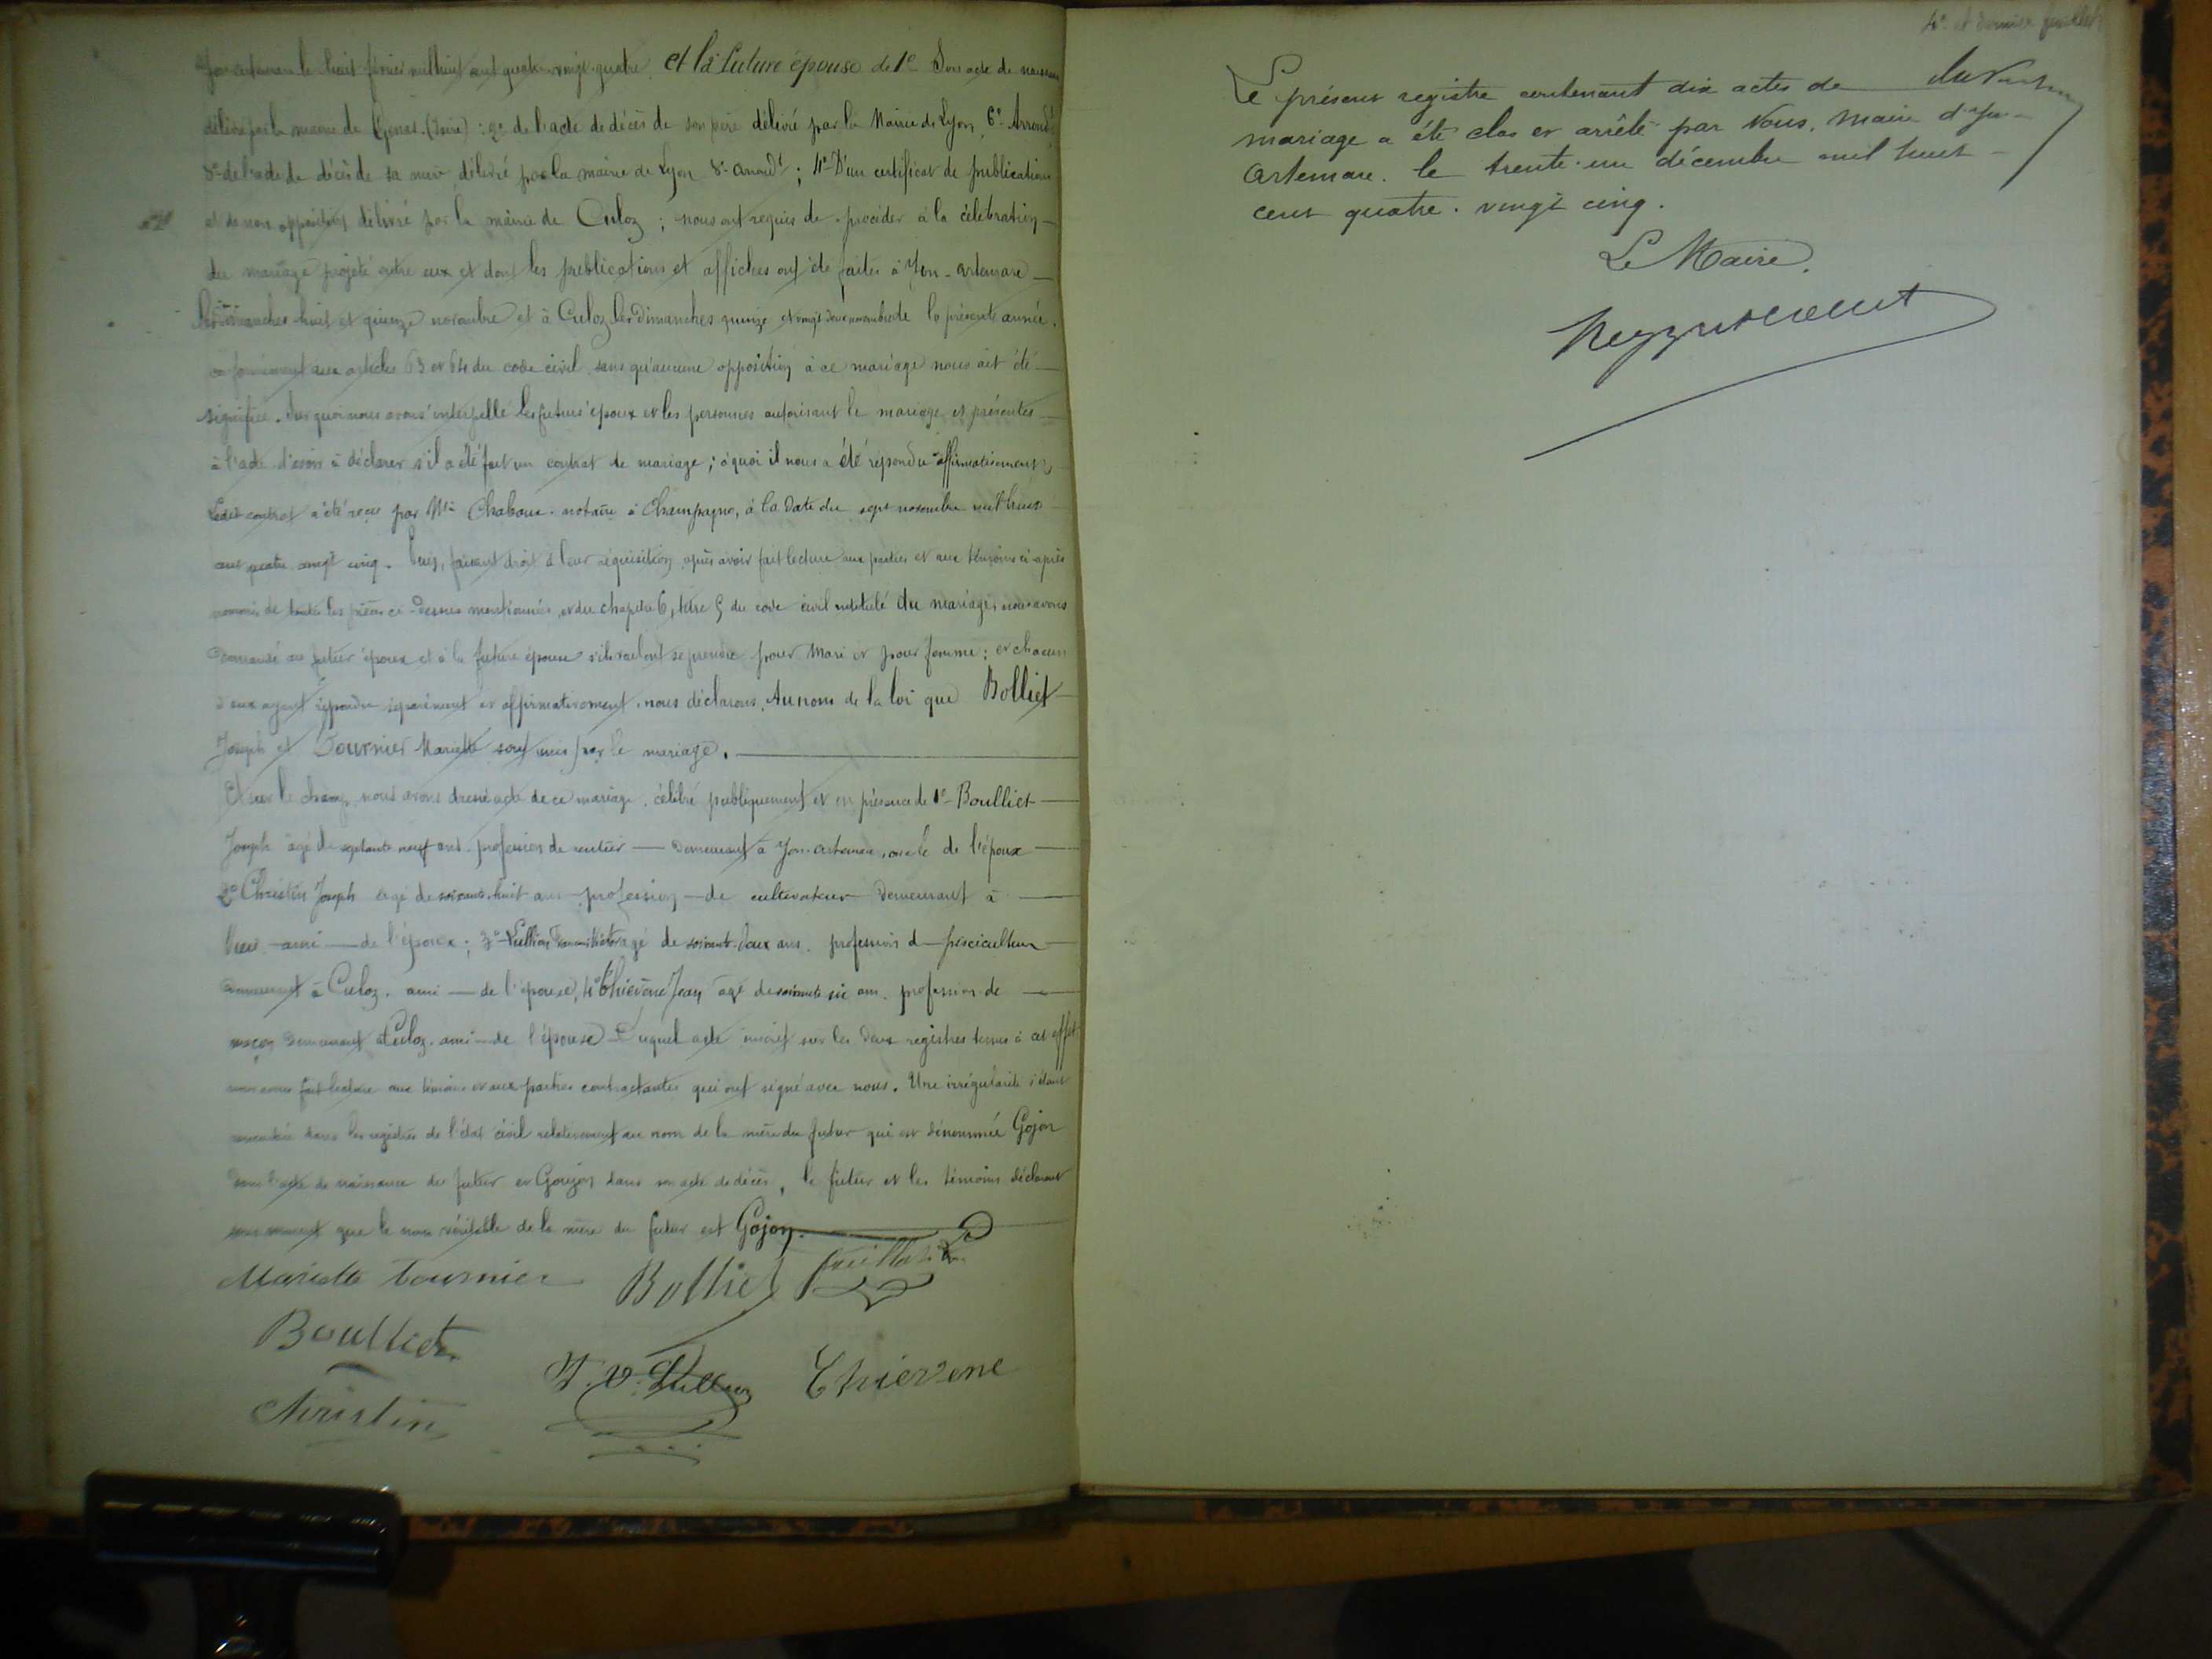 Yon-artemare le huit février mil huit cent quatre-vingt-quatre. Et la future épouse de 1º Son acte de naissance
délivré par la mairie de Genas. (Isère) : 2º de l'acte de décès de son père délivré par la Mairie de Lyon 6e Arrondt
3º de l'acte de décès de sa mère délivré par la mairie de Lyon 8e arrondt ; 4º D'un certificat de publication
et de non opposition délivré par la mairie de Culoz ; nous ont requis de procéder à la célébration
du mariage projeté entre eux et dont les publications et affiches ont été faites à Yon-artemare
les dimanches huit et quinze novembre et à Culoz les dimanches quinze et vingt deux novembre de la présente année.
conformément aux articles 63 et 64 du code civil sans qu'aucune opposition à ce mariage nous ait été
signifiée. Sur quoi nous avons interpellé les futurs époux et les personnes autorisant le mariage et présentes
à l'acte d'avoir à déclarer s'il a été fait un contrat de mariage ; à quoi il nous a été répondu affirmativement
Ledit contrat a été reçu par Me Chaboux notaire à Champagne, à la date du sept novembre mil huit
cent quatre vingt cinq. Puis, faisant droit à leur réquisition après avoir fait lecture aux parties et aux témoins ci-après
nommés de toutes les pièces ci-dessus mentionnées et du chapitre 6, titre 5 du code civil intitulé du mariage, nous avons
demandé au futur époux et à la future épouse s'ils veulent se prendre pour Mari et pour femme ; et chacun
d'eux ayant répondu séparément et affirmativement, nous déclarons, Au nom de la loi que Bolliet
Joseph et Tournier Mariette sont unis par le mariage.
Et sur le champ nous avons dressé acte de ce mariage. célébré publiquement et en présence de 1º Boulliet
Joseph âgé de septante neuf ans. profession de rentier demeurant à Yon-artemare, oncle de l'époux
2º Christin Joseph âgé de soixante huit ans profession de cultivateur demeurant à
ami de l'époux ; 3º Lullion âgé de soixante-deux ans. profession de pisciculteur
demeurant à Culoz. ami de l'épouse, 4º Thiévene Jean âgé de soixante six ans. profession de
maçon demeurant à Culoz. ami de l'épouse Duquel acte inscrit sur les deux registres tenus à cet effet
nous avons fait lecture aux témoins et aux parties contractantes qui ont signé avec nous. Une irrégularité s'étant
rencontrée dans les registres de l'état civil relativement au nom de la mère du futur qui est dénommée Gojon
dans l'acte de naissance du futur et Goujon dans son acte de décès, le futur et les témoins déclarent
que le nom véritable de la mère du futur est Gojon.
Mariette tournier Bolliet
Boulliet
Christin Thiévene
4e et dernier feuillet
Le présent registre contenant dix actes de
mariage a été clos et arrêté par Nous, Maire d'Yon-
Artemare. le trente-un décembre mil huit
cent quatre-vingt cinq.
Le Maire.